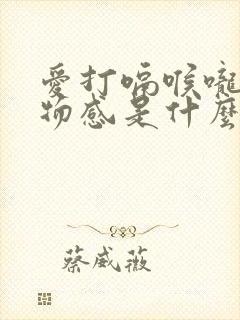 愛打嗝喉嚨
物感是什麼
蔡威薇